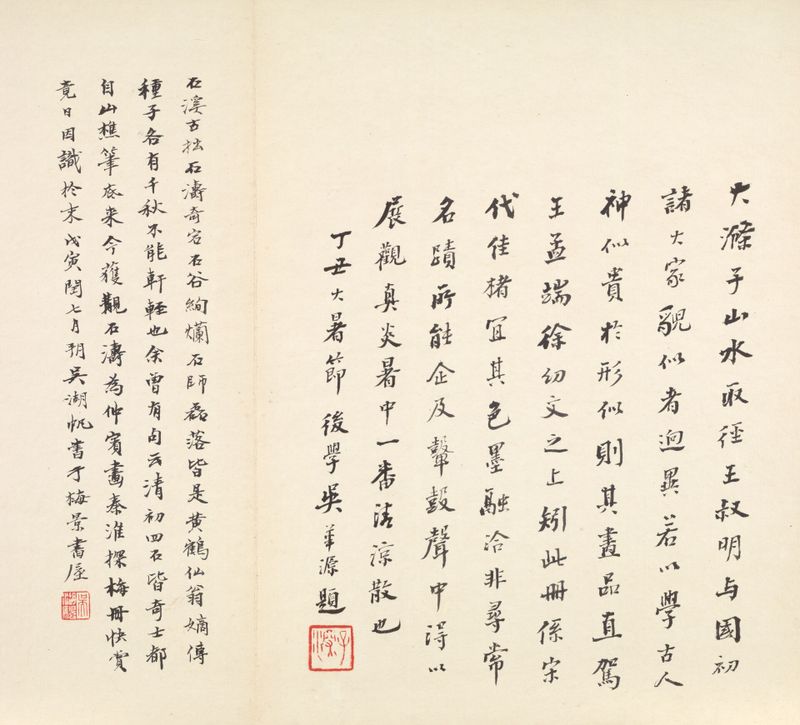 大滌子山水取徑王叔明与國初
諸大家貌似者迥異若以學古人
神似貴於形似則其畫品直駕
王孟端徐幼文之上矧此冊係宋
代佳楮宜其色墨融洽非尋常
名蹟所能企及鼙鼓聲中得以
展觀真炎暑中一番清涼散也
丁丑大暑節後學吳華源題
子深
石溪古拙石濤奇宕石谷絢爛石師磊落皆是黄鶴仙翁嫡傳
種子各有千秋不能軒輊也余曾有句云清初四石皆奇士都
自山樵筆底来今獲觀石濤為仲賓畫秦淮探梅冊快賞
竟日因識於末戊寅閏七月朔吳湖帆書于梅景書屋